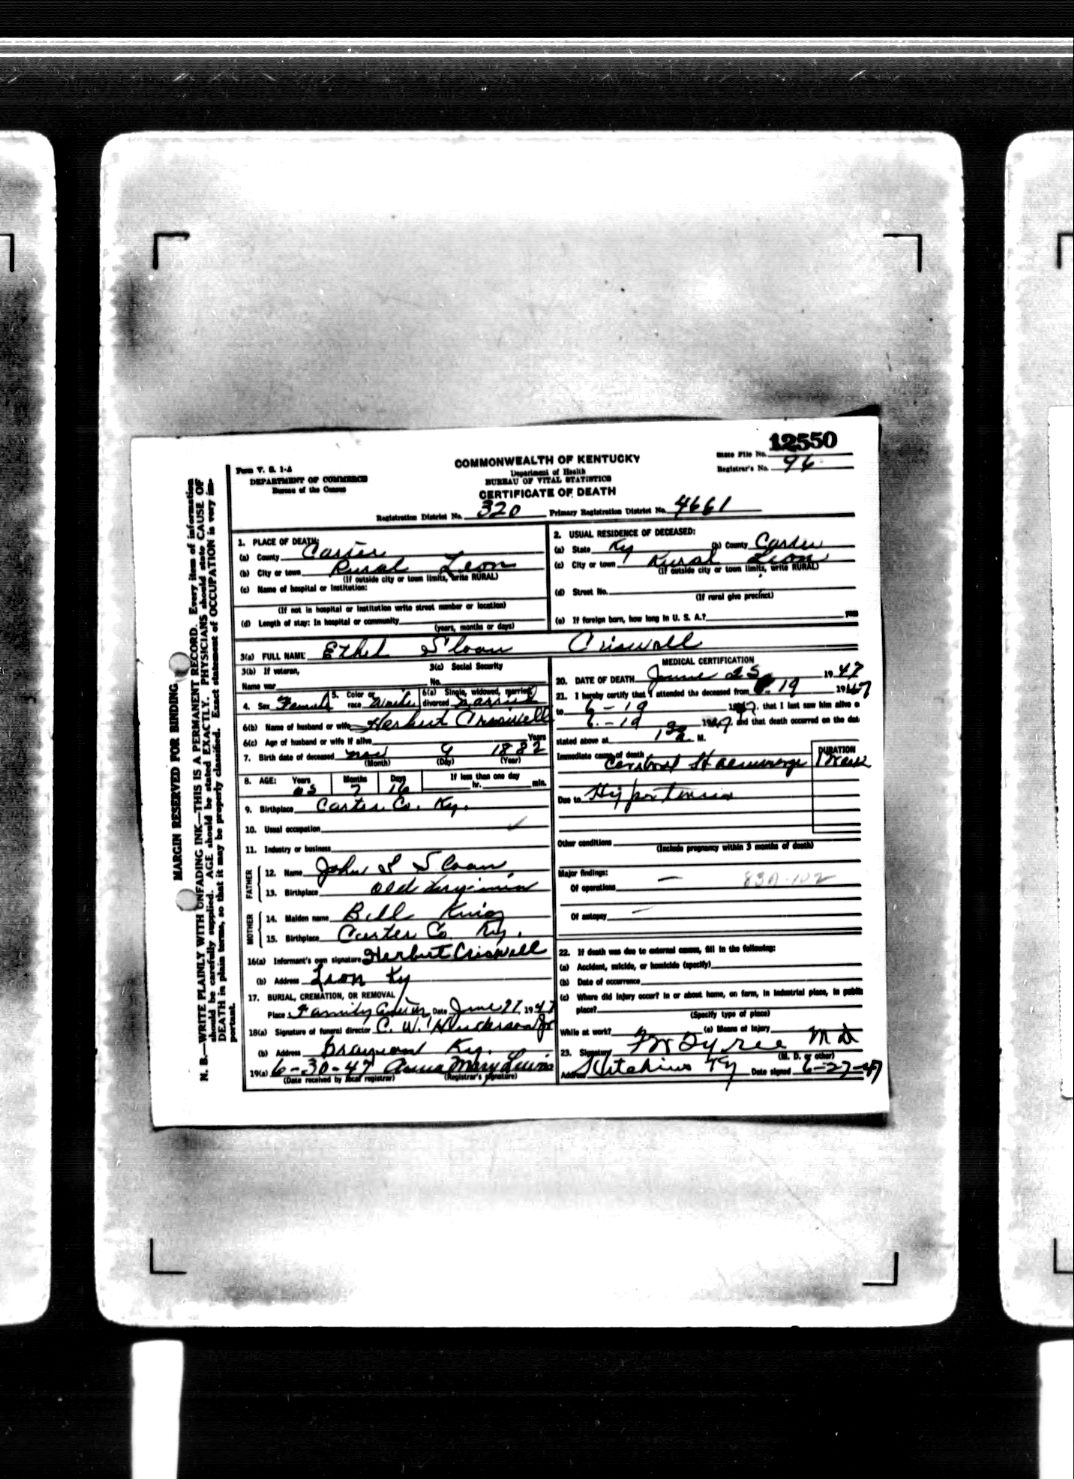 12550
Form V. S. 1-A
DEPARTMENT OF COMMERCE
Bureau of the Census
COMMONWEALTH OF KENTUCKY
Department of Health
BUREAU OF VITAL STATISTICS
CERTIFICATE OF DEATH
State File No.
Registrar's No. 96
Registration District No. 320 Primary Registration District No. 4661
MARGIN RESERVED FOR BINDING
N. B.—WRITE PLAINLY WITH UNFADING INK—THIS IS A PERMANENT RECORD. Every item of information
should be carefully supplied. AGE should be stated EXACTLY. PHYSICIANS should state CAUSE OF
DEATH in plain terms, so that it may be properly classified. Exact statement of OCCUPATION is very im-
portant.
1. PLACE OF DEATH:
(a) County Carter
(b) City or town Rural Leon
(If outside city or town limits, write RURAL)
(c) Name of hospital or institution:
(If not in hospital or institution write street number or location)
(d) Length of stay: In hospital or community
(years, months or days)
2. USUAL RESIDENCE OF DECEASED:
(a) State Ky (b) County Carter
(c) City or town Rural Leon
(If outside city or town limits, write RURAL)
(d) Street No.
(If rural give precinct)
(e) If foreign born, how long in U. S. A.? years
3(a) FULL NAME Ethel Sloan Criswell
3(b) If veteran,
Name war
3(c) Social Security
No.
4. Sex Female 5. Color or race White 6(a) Single, widowed, married, divorced married
6(b) Name of husband or wife Herbert Criswell
6(c) Age of husband or wife if alive Years
7. Birth date of deceased Nov 9 1882
(Month) (Day) (Year)
8. AGE: Years Months Days If less than one day
7 16 hr. min.
9. Birthplace Carter Co. Ky.
10. Usual occupation
11. Industry or business
FATHER
12. Name John S Sloan
13. Birthplace Old Virginia
MOTHER
14. Maiden name Bell King
15. Birthplace Carter Co Ky.
16(a) Informant's own signature Herbert Criswell
(b) Address Leon Ky
17. BURIAL, CREMATION, OR REMOVAL
Place Family Date June 27, 1947
18(a) Signature of funeral director C. W. Henderson
(b) Address Grayson Ky.
19(a) 6-30-47 Anna Mary Lewis
(Date received by local registrar) (Registrar's signature)
MEDICAL CERTIFICATION
20. DATE OF DEATH June 25 1947
21. I hereby certify that I attended the deceased from 6-19 1947
to 6-19 1947, that I last saw him alive o
6-19 1947 and that death occurred on the dat
stated above at M.
Immediate cause of death DURATION
Cerebral Haemorrage 1 week
Due to Hypertension
Other conditions
(Include pregnancy within 3 months of death)
Major findings:
Of operations — 83A-102
Of autopsy —
22. If death was due to external causes, fill in the following:
(a) Accident, suicide, or homicide (specify)
(b) Date of occurrence
(c) Where did injury occur? In or about home, on farm, in industrial place, in public
place?
(Specify type of place)
While at work? (e) Means of injury
23. Signature M D
(M. D. or other)
Address Hitchins Ky Date signed 6-27-47